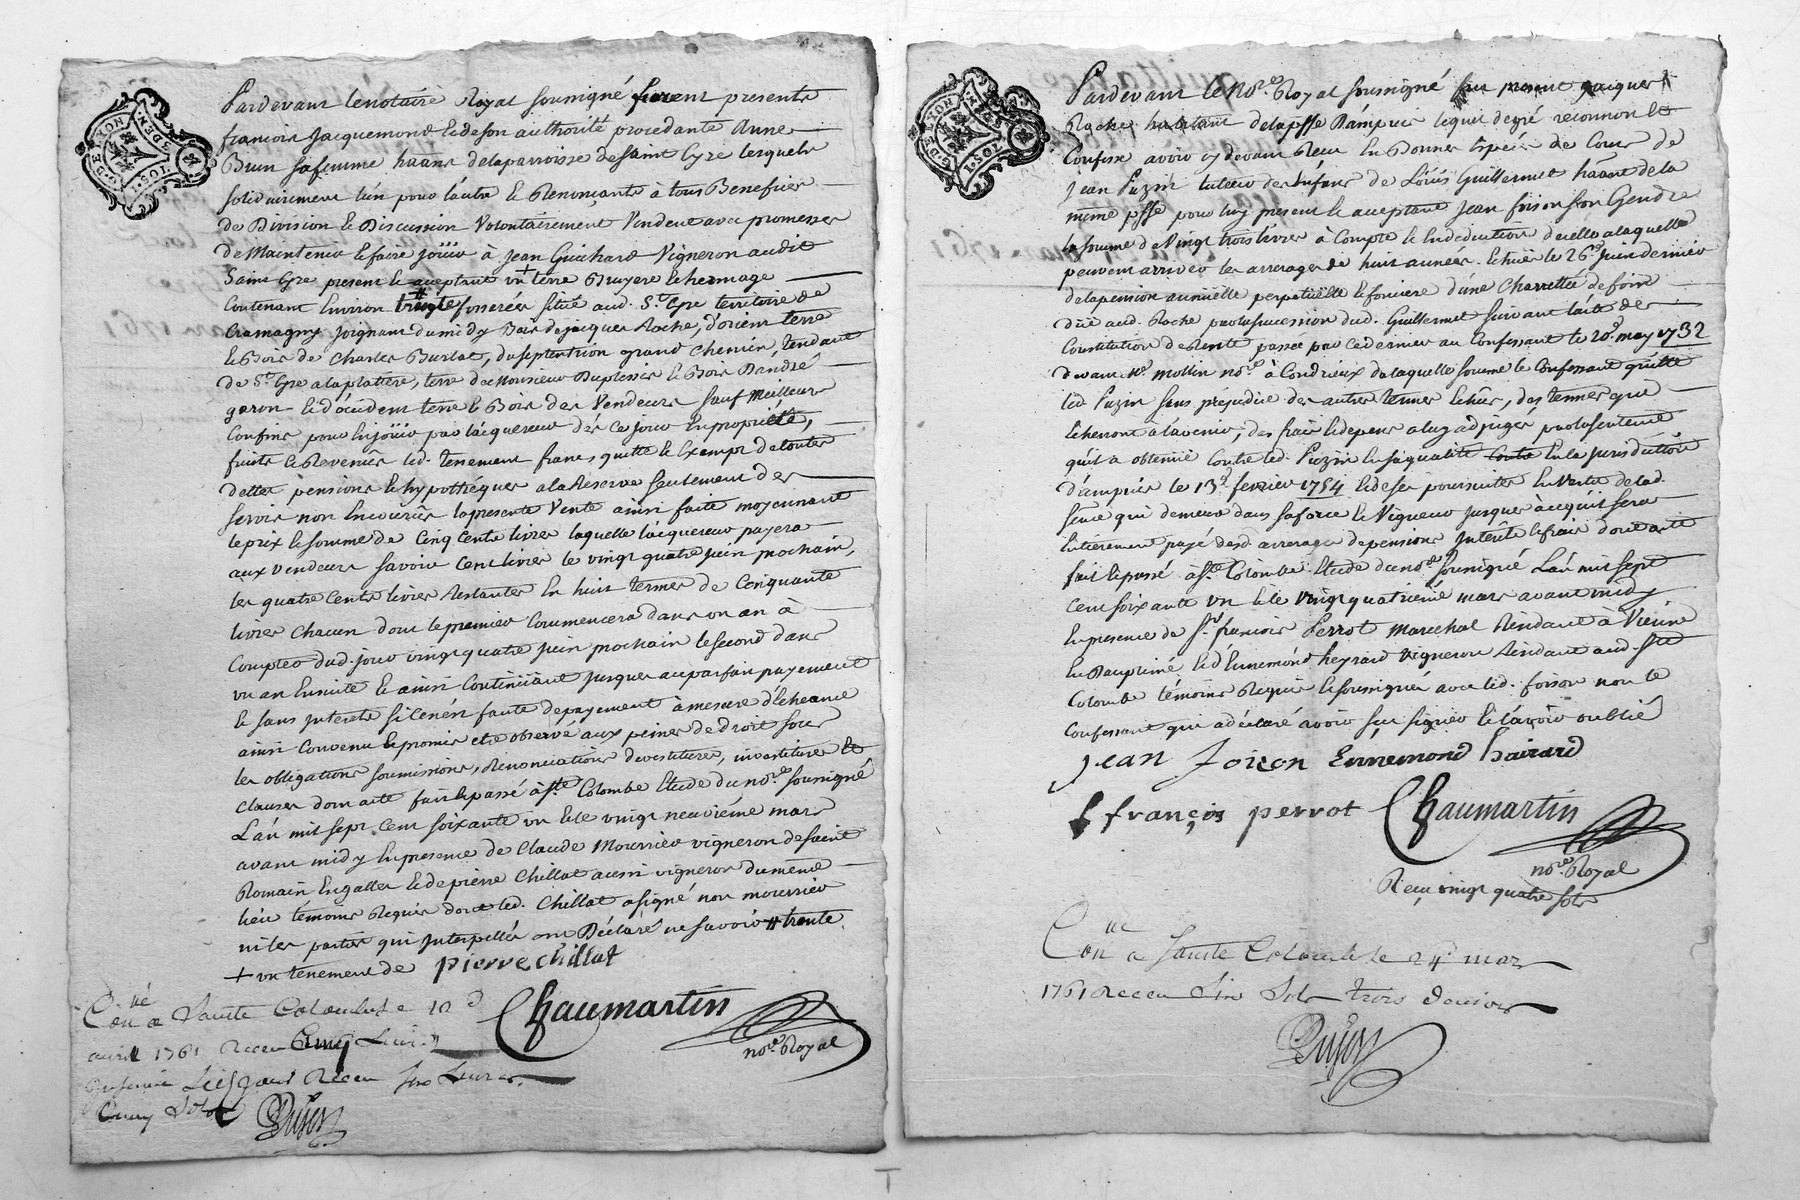 Pardevant le notaire Royal soussigné furent presents
françois Jacquemond & de son authorité procedante Anne
Brun sa femme hâans de la parroisse de saint Cyre lesquels
solidairement l'un pour l'autre & Renonçants à tous Benefices
de Division & Discussion Volontairement Vendent avec promesses
de Maintenir & faire joüir à Jean Guichard Vigneron audit
Saint Cyre present & acceptant + terre Bruyere & hermage
Contenant Environ # fosserées situé aud. St. Cyre territoire de
Cramagny joignant du midy Bois de jacques Roche, d'orient terre
& Bois de Charles Burlat, du septentrion grand Chemin, tendant
de St. Cyre a la platiere, terre de Monsieur Duplessis & Bois D'andré
garon & d'occident terre & Bois des Vendeurs sauf Meilleurs
Confins pour En joüir par l'acquereur dés ce jour En proprieté,
fruits & Revenûs led. tenement franc, quitte & Exempt de toutes
dettes pensions & hypothéques a la Reserve seulement des
servis non Encourûs la presente Vente ainsi faite moyennant
le prix & somme de Cinq Cents livres laquelle l'acquereur payera
aux Vendeurs savoir Cent livres le vingt quatre juin prochain,
les quatre Cents livres Restantes En huit termes de Cinquante
livres Chacun dont le premier Commencera dans un an à
Compter dud. jour vingt quatre juin prochain le second dans
un an Ensuite & ainsi Continüant jusques au parfait payement
& sans jnterets si Cen'ést faute de payement à mesure d'Echeance
ainsi Convenu & promis etre observé aux peines de droit sous
les obligations soumissions, Renonciations devestitures, investitures &
clauses dont acte fait & passé à Ste. Colombe Etude du nore. soussigné
L'an mil sept cent soixante un & le vingt neuviéme mars
avant midy En presence de Claude Mourrier vigneron de saint
Romain En galles & de pierre Chillat aussi vigneron du même
lieu temoins Requis dont led. Chillat a signé non mourrier
ni les parties qui jnterpellés ont Déclaré ne savoir # trente
+ un tenement de pierre chillat
Chaumartin
nore. Royal
Con.lé a Sainte Colombe le 10 d
avril 1761 Receu Cinq Livres
Receu six Livres
Cinq Sols
Pardevant le Nore. Royal soussigné fut present jacques
Roche habitant de la psse d'ampuis lequel de gré reconnoit &
Confesse avoir cy devant Reçu En Bonnes Espéces de Cours de
Jean Puzin tuteur des Enfans de Loüis Guillermet hâant de la
même psse pour luy present & acceptant Jean foison son Gendre
la somme de Vingt trois livres à Compte & En deduction de celle a laquelle
peuvent arriver les arrerages de huit années Echües le 26e. juin dernier
de la pension annüelle perpetüelle & fonciere d'une Charrettée de foin
düe aud. Roche par la succession dud. Guillermet suivant l'acte de
Constitution de Rente passée par ce dernier au Confessant le 20e. may 1732
devant Me. Mollin nore. à Condrieux de laquelle somme le Confessant quitte
led Puzin sans préjudice des autres termes Echûs, des termes qui
Echerront à l'avenir, des frais & depens a luy adjugés par la sentence
qu'il a obtenüe Contre led. Puzin En sa qualité En la jurisdiction
d'ampuis le 13e. fevrier 1754 & de ses poursuites En Vertu de lad.
sence qui demeure dans sa force & Vigueur jusques àcequ'il sera
Entierement payé desd arrerages de pension jnterêts & frais dont acte
fait & passé à Ste. Colombe Etude du nore. soussigné L'an mil sept
cent soixante un & le vingt quatriéme mars avant midy
En presence de Sr. françois Perrot Marechal Résidant à Vienne
En Dauphiné & d'Ennemond heyrard vigneron Résidant aud. Ste
Colombe témoins Requis & soussignés avec led. foison non le
Confessant qui a déclaré avoir sçu signer & l'avoir oublié
jean foison Ennemond hairard
f françois perrot Chaumartin
nore. Royal
Reçu vingt quatre sols
Con.lé a Sainte Colombe le 24 mars
1761 Receu Six Sols trois deniers